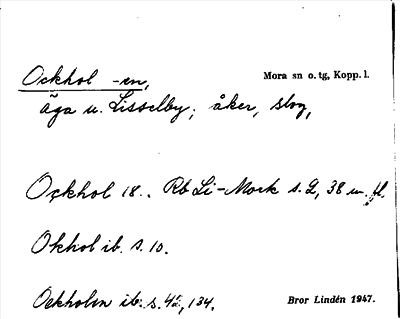 Ockhol -en,
Mora sn o. tg, Kopp. l.
äga u. Lisselby; åker, slog,
Ockhol 18.. Rb Li-Mork s. 2, 38 m. fl.
Okhol ib. s. 10.
Ockholen ib. s. 42, 134.
Bror Lindén 1947.